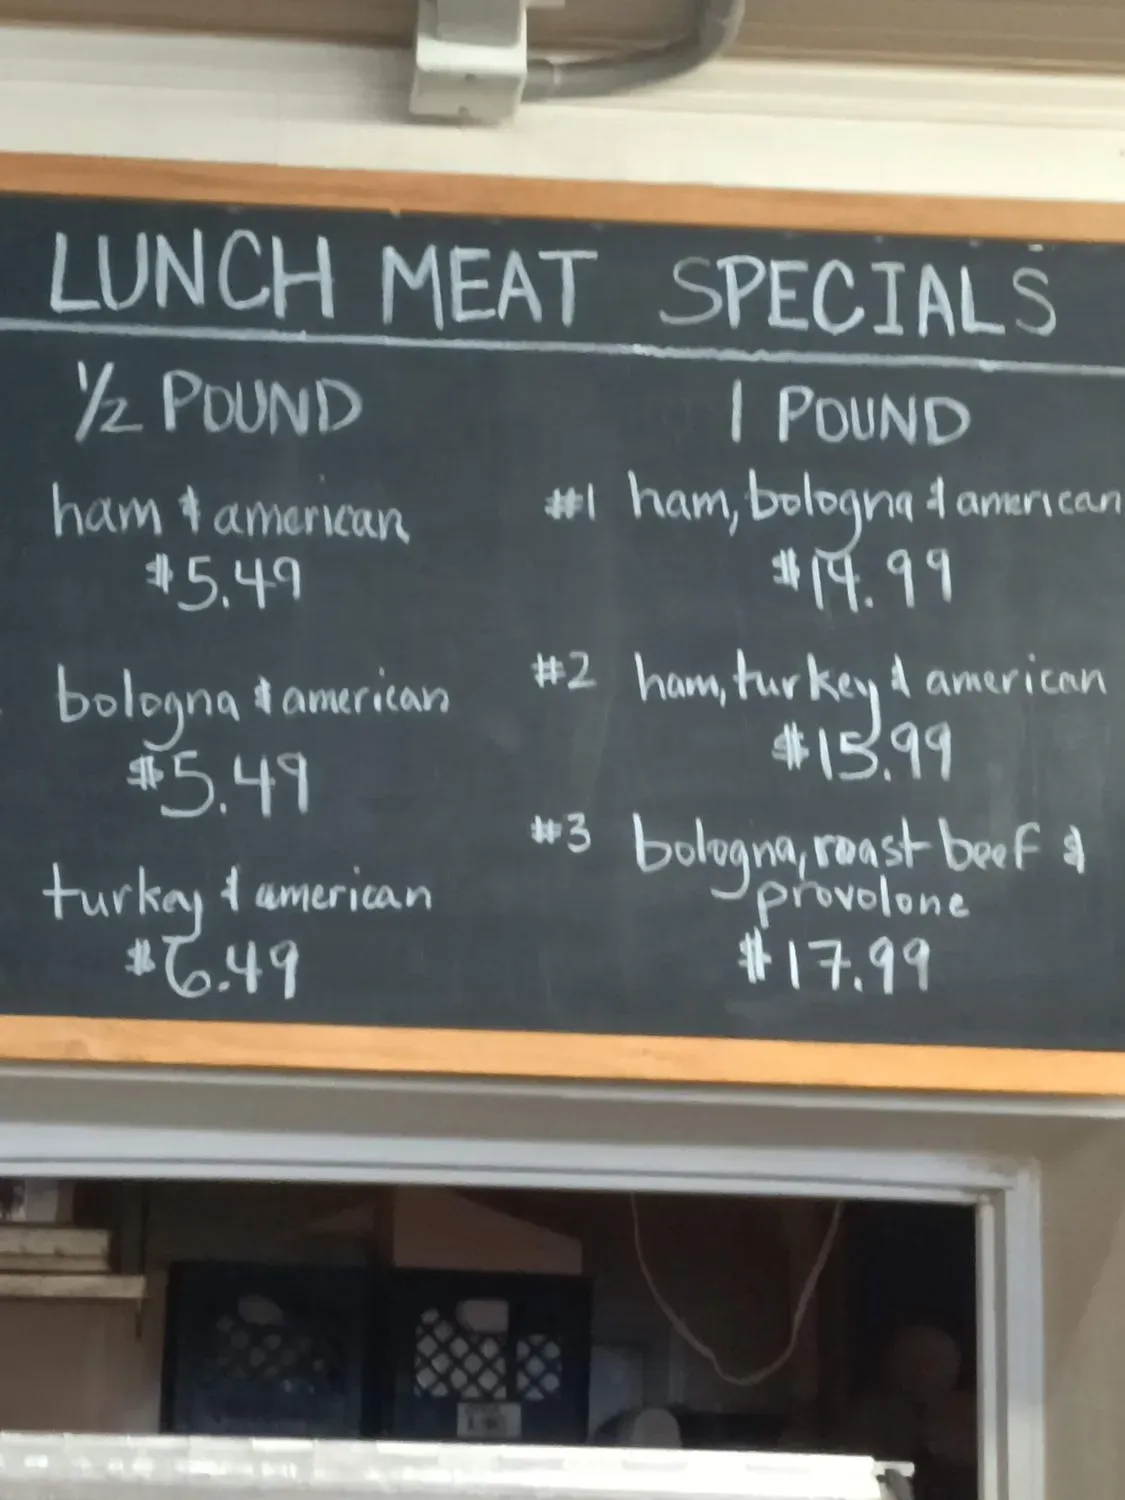 LUNCH MEAT SPECIALS
1/2 POUND
ham & american
$5.49
bologna & american
$5.49
turkey & american
$6.49
1 POUND
#1 ham, bologna & american
$14.99
#2 ham, turkey & american
$15.99
#3 bologna, roast beef &
provolone
$17.99